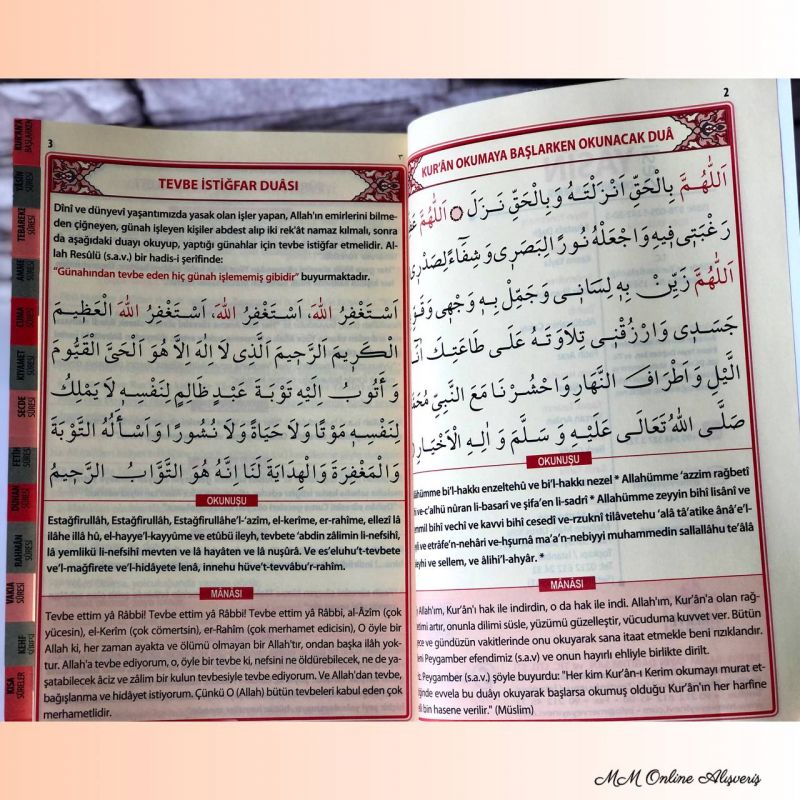 KUR'AN'A
BAŞLARKEN
YÂSÎN
SÛRESİ
TEBAREKE
SÛRESİ
AMME
SÛRESİ
CUMA
SÛRESİ
KIYAMET
SÛRESİ
SECDE
SÛRESİ
FETİH
SÛRESİ
DUHAN
SÛRESİ
RAHMÂN
SÛRESİ
VAKIA
SÛRESİ
KEHF
SÛRESİ
KISA
SÛRELER
3
٣
TEVBE İSTİĞFAR DUÂSI
Dînî ve dünyevî yaşantımızda yasak olan işler yapan, Allah'ın emirlerini bilme-
den çiğneyen, günah işleyen kişiler abdest alıp iki rek'ât namaz kılmalı, sonra
da aşağıdaki duayı okuyup, yaptığı günahlar için tevbe istiğfar etmelidir. Al-
lah Resûlü (s.a.v.) bir hadis-i şerifinde:
"Günahından tevbe eden hiç günah işlememiş gibidir" buyurmaktadır.
اَسْتَغْفِرُ اللهَ، اَسْتَغْفِرُ اللهَ، اَسْتَغْفِرُ اللهَ الْعَظِيمَ
الْكَرِيمَ الرَّحِيمَ الَّذِي لَا اِلٰهَ اِلَّا هُوَ الْحَيَّ الْقَيُّومَ
وَ اَتُوبُ اِلَيْهِ تَوْبَةَ عَبْدٍ ظَالِمٍ لِنَفْسِهِ لَا يَمْلِكُ
لِنَفْسِهِ مَوْتًا وَلَا حَيَاةً وَلَا نُشُورًا وَاَسْأَلُهُ التَّوْبَةَ
وَالْمَغْفِرَةَ وَالْهِدَايَةَ لَنَا اِنَّهُ هُوَ التَّوَّابُ الرَّحِيمُ
OKUNUŞU
Estağfirullâh, Estağfirullâh, Estağfirullâhe'l-'azîm, el-kerîme, er-rahîme, ellezî lâ
ilâhe illâ hû, el-hayye'l-kayyûme ve etûbü ileyh, tevbete 'abdin zâlimin li-nefsihî,
lâ yemlikü li-nefsihî mevten ve lâ hayâten ve lâ nuşûrâ. Ve es'eluhu't-tevbete
ve'l-mağfirete ve'l-hidâyete lenâ, innehu hüve't-tevvâbu'r-rahîm.
MÂNÂSI
Tevbe ettim yâ Râbbi! Tevbe ettim yâ Râbbi! Tevbe ettim yâ Râbbi, al-Âzîm (çok
yücesin), el-Kerîm (çok cömertsin), er-Rahîm (çok merhamet edicisin), O öyle bir
Allah ki, her zaman ayakta ve ölümü olmayan bir Allah'tır, ondan başka ilâh yok-
tur. Allah'a tevbe ediyorum, o, öyle bir tevbe ki, nefsini ne öldürebilecek, ne de ya-
şatabilecek âciz ve zâlim bir kulun tevbesiyle tevbe ediyorum. Ve Allah'dan tevbe,
bağışlanma ve hidâyet istiyorum. Çünkü O (Allah) bütün tevbeleri kabul eden çok
merhametlidir.
2
KUR'ÂN OKUMAYA BAŞLARKEN OKUNACAK DUÂ
اَللّٰهُمَّ بِالْحَقِّ اَنْزَلْتَهُ وَبِالْحَقِّ نَزَلَ اَللّٰهُمَّ
رَغْبَتِي فِيهِ وَاجْعَلْهُ نُورًا لِبَصَرِي وَشِفَاءً لِصَدْرِي
اَللّٰهُمَّ زَيِّنْ بِهِ لِسَانِي وَجَمِّلْ بِهِ وَجْهِي وَقَوِّ
جَسَدِي وَارْزُقْنِي تِلَاوَتَهُ عَلَى طَاعَتِكَ
الَّيْلِ وَاَطْرَافَ النَّهَارِ وَاحْشُرْنَا مَعَ النَّبِيِّ
صَلَّى اللهُ تَعَالَى عَلَيْهِ وَ سَلَّمَ وَ اٰلِهِ الْاَخْيَارِ
OKUNUŞU
bi'l-hakkı enzeltehû ve bi'l-hakkı nezel * Allahümme 'azzim rağbetî
nûran li-basarî ve şifa'en li-sadrî * Allahümme zeyyin bihî lisânî ve
bihî vechî ve kavvi bihî cesedî ve-rzuknî tilâvetehu 'alâ tâ'atike ânâ'e'l-
ve etrâfe'n-nehâri ve-hşurnâ ma'a'n-nebiyyi muhammedin sallallâhu te'âlâ
ve sellem, ve âlihi'l-ahyâr. *
MÂNÂSI
Allah'ım, Kur'ân'ı hak ile indirdin, o da hak ile indi. Allah'ım, Kur'ân'a olan rağ-
artır, onunla dilimi süsle, yüzümü güzelleştir, vücuduma kuvvet ver. Bütün
ve gündüzün vakitlerinde onu okuyarak sana itaat etmekle beni rızıklandır.
Peygamber efendimiz (s.a.v) ve onun hayırlı ehliyle birlikte dirilt.
Peygamber (s.a.v.) şöyle buyurdu: "Her kim Kur'ân-ı Kerim okumayı murat et-
evvela bu duâyı okuyarak başlarsa okumuş olduğu Kur'ân'ın her harfine
bin hasene verilir." (Müslim)
MM Online Alışveriş